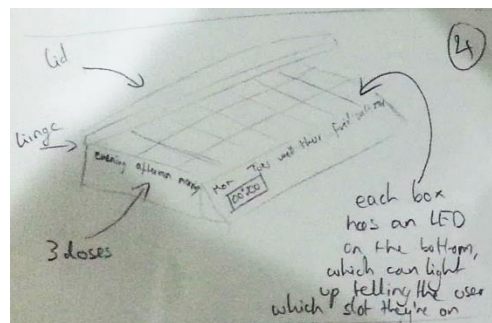 4
Lid
hinge
evening afternoon morning
Mon Tues wed thur fri sat sun
00:00
3 doses
each box
has an LED
on the bottom,
which can light
up telling the user
which slot they're on